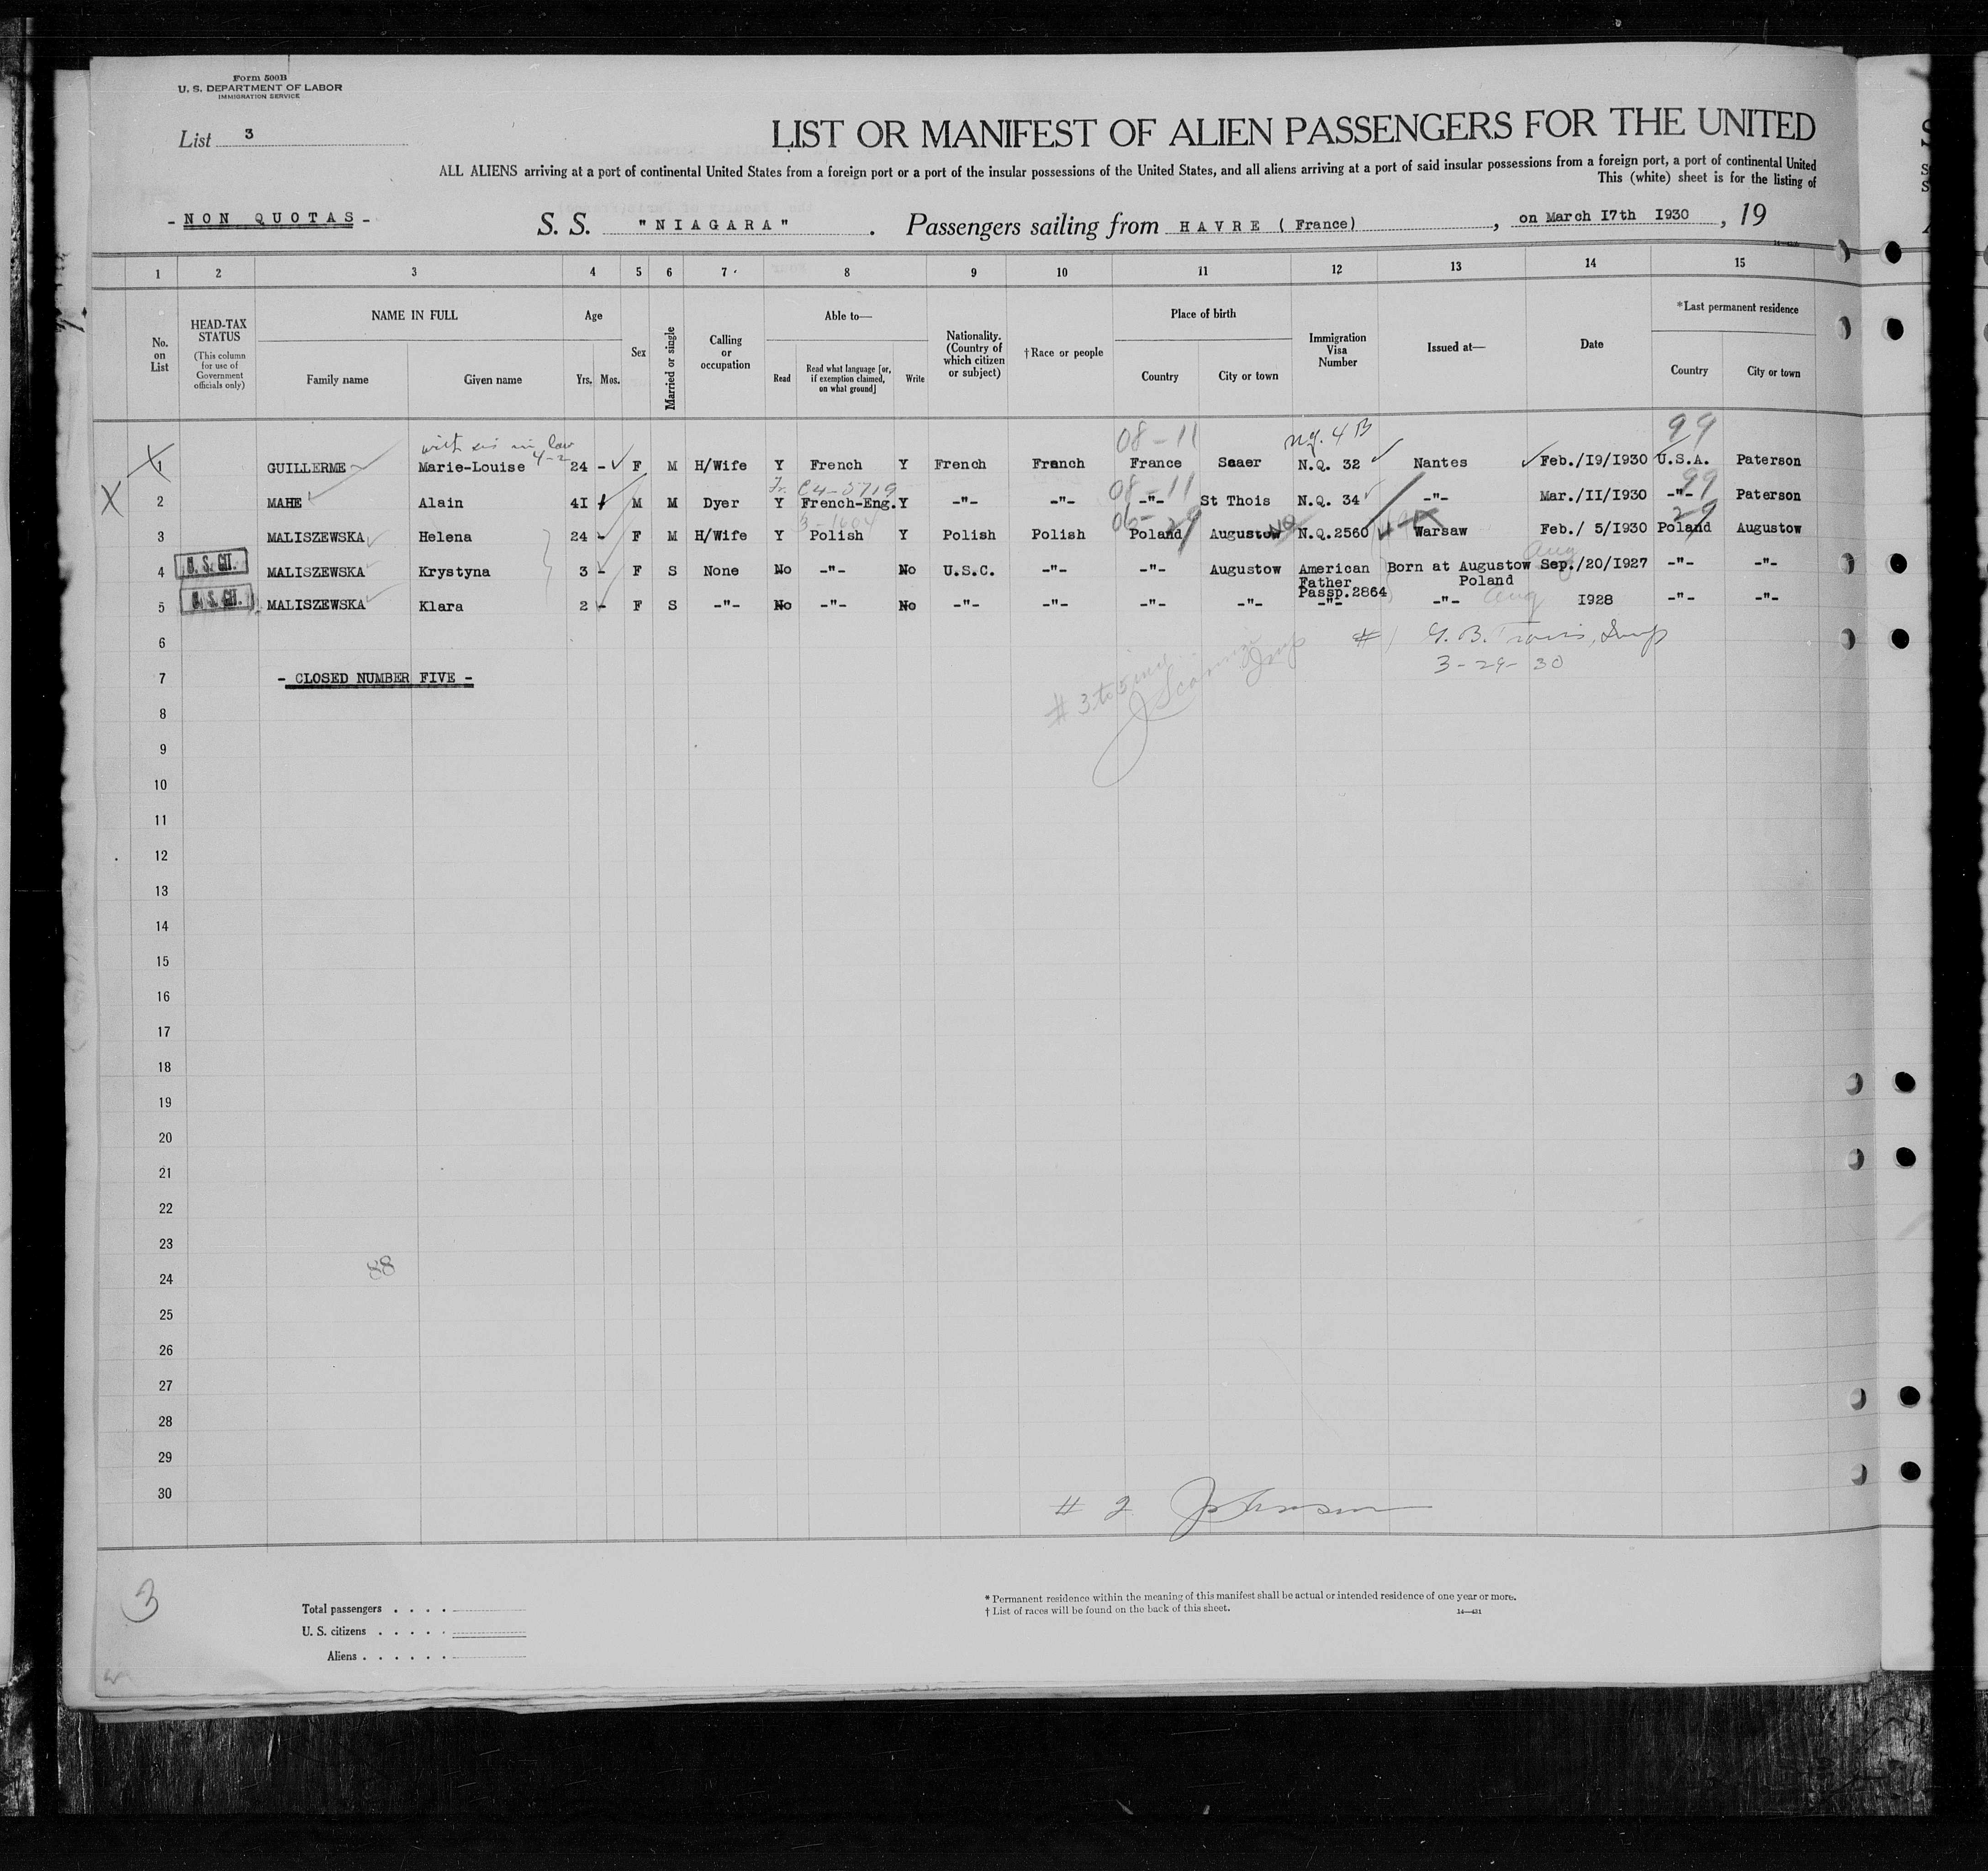 Form 500B
U. S. DEPARTMENT OF LABOR
IMMIGRATION SERVICE
List 3
LIST OR MANIFEST OF ALIEN PASSENGERS FOR THE UNITED
ALL ALIENS arriving at a port of continental United States from a foreign port or a port of the insular possessions of the United States, and all aliens arriving at a port of said insular possessions from a foreign port, a port of continental United
This (white) sheet is for the listing of
- NON QUOTAS -
S. S. "NIAGARA" . Passengers sailing from HAVRE ( France) , on March I7th I930 , 19
1 2 3 4 5 6 7 8 9 10 11 12 13 14 15
No. on List
HEAD-TAX STATUS (This column for use of Government officials only)
NAME IN FULL
Family name Given name
Age
Yrs. Mos.
Sex
Married or single
Calling or occupation
Able to—
Read Read what language [or, if exemption claimed, on what ground] Write
Nationality. (Country of which citizen or subject)
†Race or people
Place of birth
Country City or town
Immigration Visa Number
Issued at—
Date
*Last permanent residence
Country City or town
with sis in law 4-2 08-11 nq. 4 B 99
1 GUILLERME Marie-Louise 24 - F M H/Wife Y French Y French French France Scaer N.Q. 32 Nantes Feb./I9/I930 U.S.A. Paterson
Fr. C4-5719 08-11 99
X 2 MAHE Alain 4I M M Dyer Y French-Eng. Y -"- -"- -"- St Thois N.Q. 34 -"- Mar./II/I930 -"- Paterson
06-29 29
3 MALISZEWSKA Helena 24 - F M H/Wife Y Polish Y Polish Polish Poland Augustow N.Q.2560 Warsaw Feb./ 5/I930 Poland Augustow
Aug
U. S. CIT. 4 MALISZEWSKA Krystyna 3 - F S None No -"- No U.S.C. -"- -"- Augustow American Born at Augustow Sep./20/I927 -"- -"-
Father Poland
Passp.2864
U. S. CIT. 5 MALISZEWSKA Klara 2 - F S -"- No -"- No -"- -"- -"- -"- -"- -"- Aug I928 -"- -"-
6
# 1 G. B. Travis, Insp
3-29-30
7 - CLOSED NUMBER FIVE -
# 3 to 5 incl.
Insp
8
9
10
11
12
13
14
15
16
17
18
19
20
21
22
23
88
24
25
26
27
28
29
30
# 2 Johnson
3
Total passengers . . . .
U. S. citizens . . . . .
Aliens . . . . . .
* Permanent residence within the meaning of this manifest shall be actual or intended residence of one year or more.
† List of races will be found on the back of this sheet.
14—431